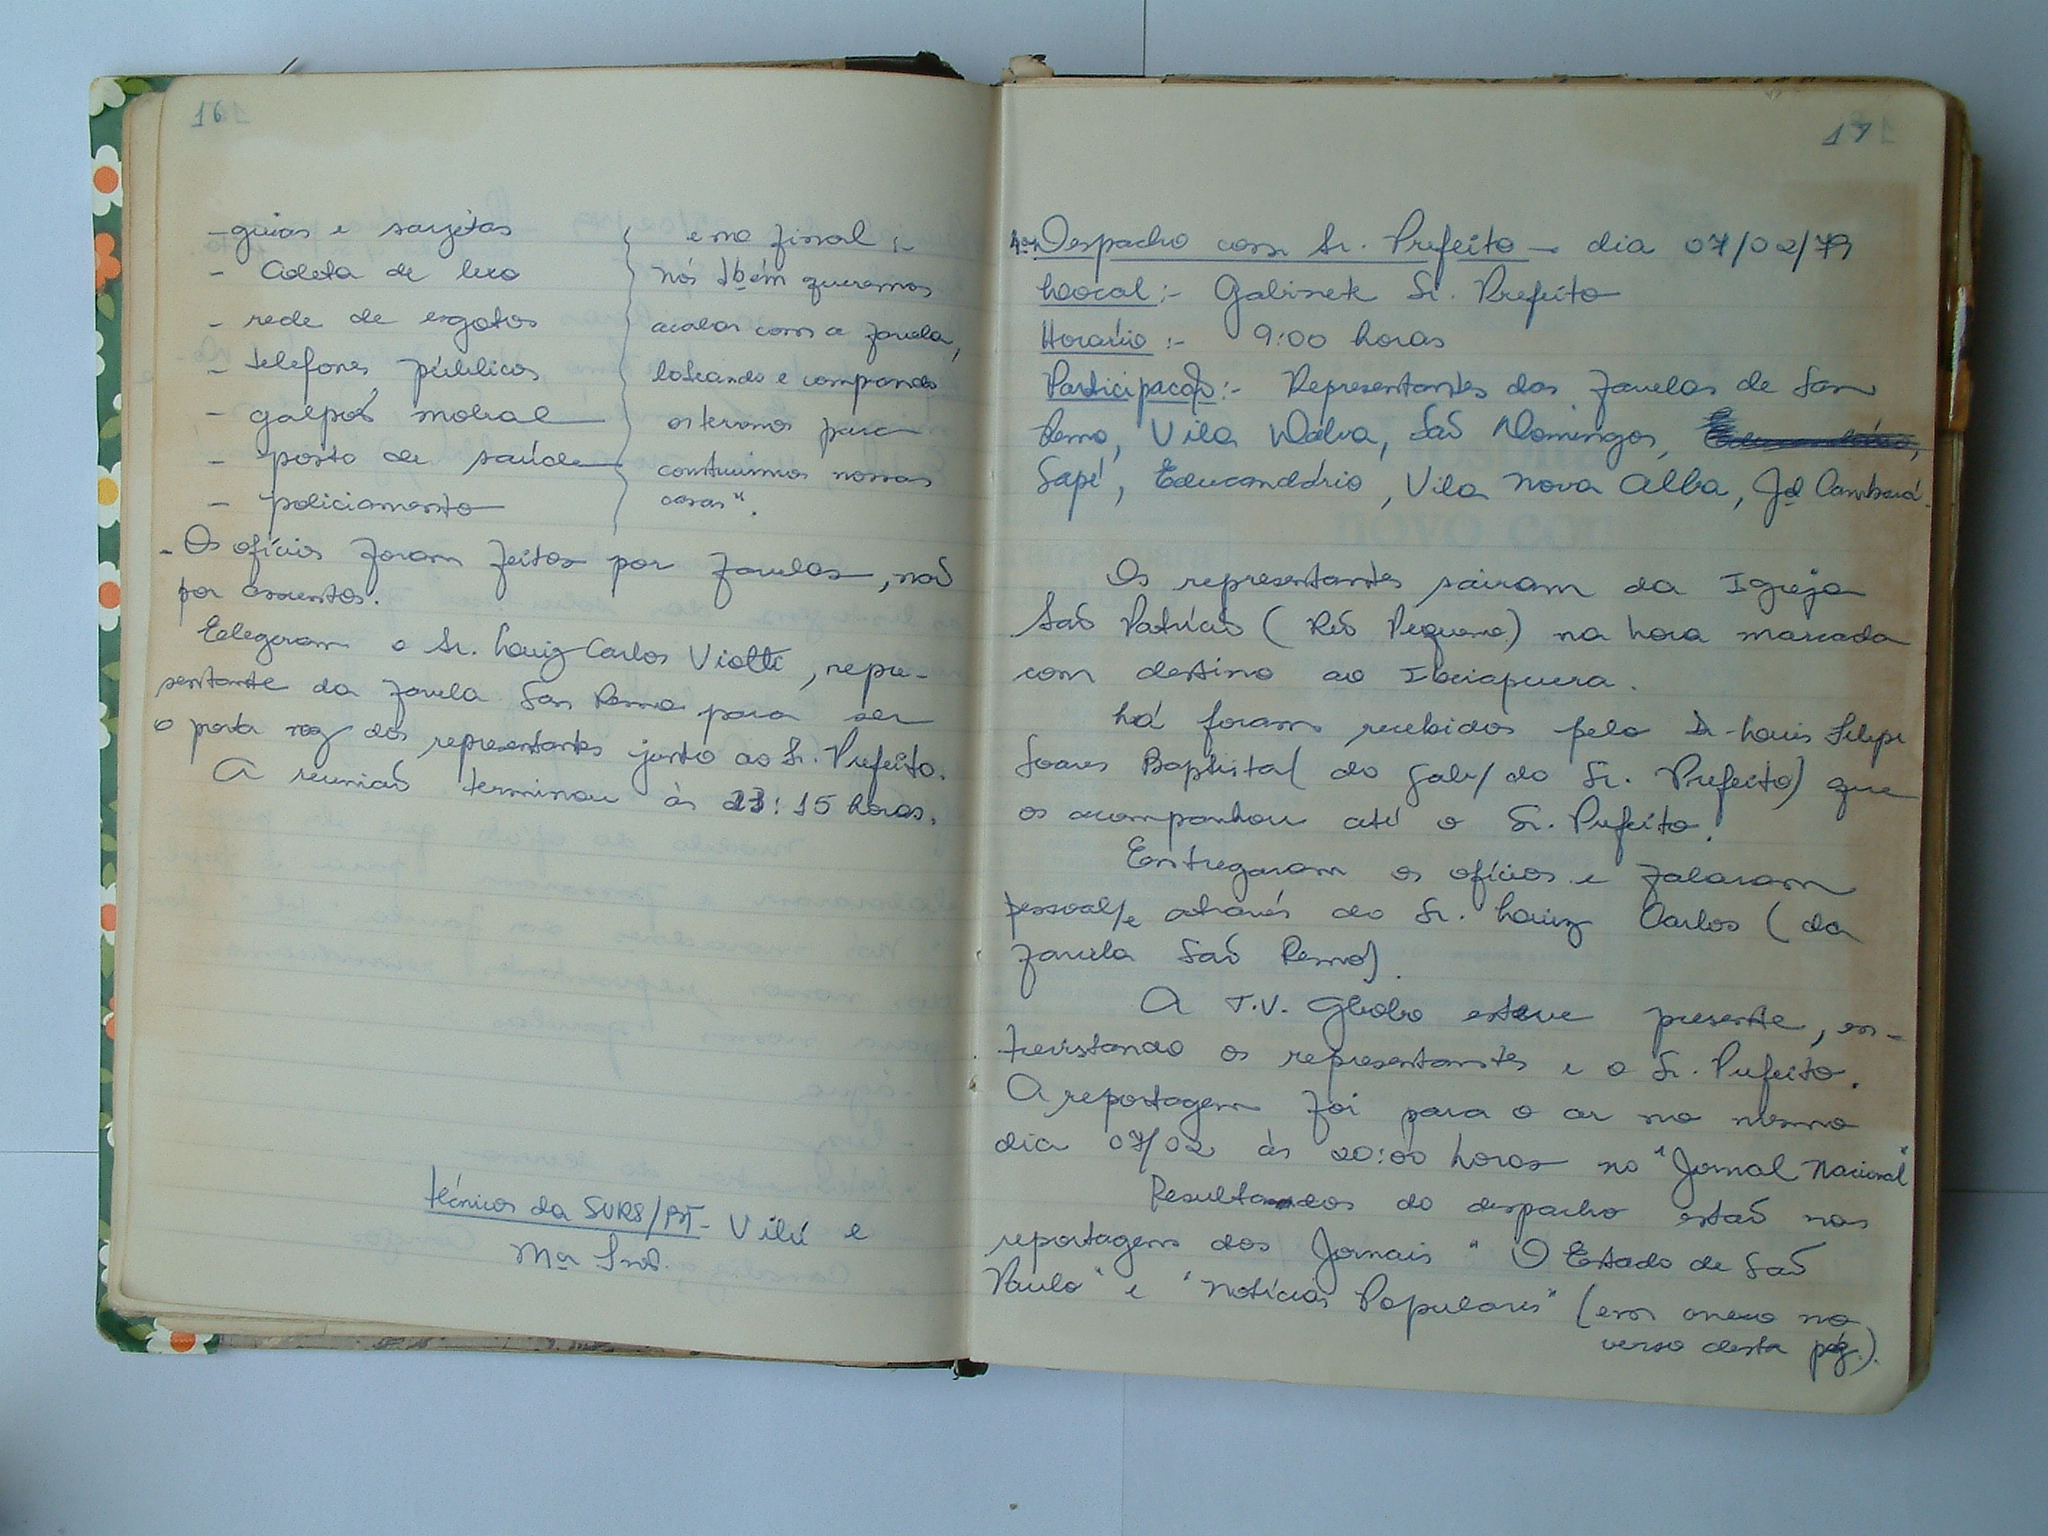 16
- guias e sarjetas
- Coleta de lixo
- rede de esgotos
- telefones públicos
- galpão mobral
- posto de saúde
- policiamento
e no final :-
nós tbém queremos
acabar com a favela,
loteando e comprando
os terrenos para
construirmos nossas
casas".
- Os ofícios foram feitos por favelas, não
por assuntos.
Elegeram o Sr. Luiz Carlos Violti, repre-
sentante da favela San Remo para ser
o porta voz dos representantes junto ao Sr. Prefeito.
A reunião terminou às 23:15 horas.
técnicos da SURS/BT - Vilú e
Mª
17
Despacho com Sr. Prefeito - dia 07/02/79
Local :- Gabinete Sr. Prefeito
Horário :- 9:00 horas
Participação :- Representantes das favelas de San
Remo, Vila Dalva, São Domingos,
Sapé, Educandário, Vila Nova Alba, Jd Cambará.
Os representantes sairam da Igreja
São Patrício (Rio Pequeno) na hora marcada
com destino ao Ibirapuera.
Lá foram recebidos pelo Dr. Louis Filipe
Soares Baptista (do Gab/ do Sr. Prefeito) que
os acompanhou até o Sr. Prefeito.
Entregaram os ofícios e falaram
pessoal/e através do Sr. Luiz Carlos (da
favela São Remo).
A T.V. Globo esteve presente, en-
trevistando os representantes e o Sr. Prefeito.
A reportagem foi para o ar no mesmo
dia 07/02 às 20:00 horas no "Jornal Nacional"
Resultados do despacho estão nas
reportagens dos Jornais "O Estado de São
Paulo" e "Notícias Populares" (em anexo no
verso desta pág.).